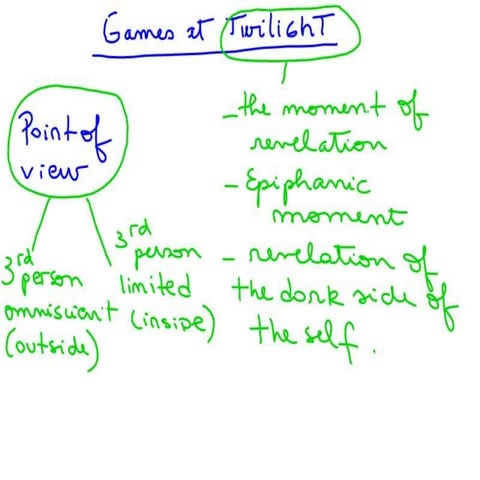 Games at TwilighT
Point of
view
3rd
person
omniscient
(outside)
3rd
person
limited
(inside)
- the moment of
revelation
- Epiphanic
moment
- revelation of
the dark side of
the self.